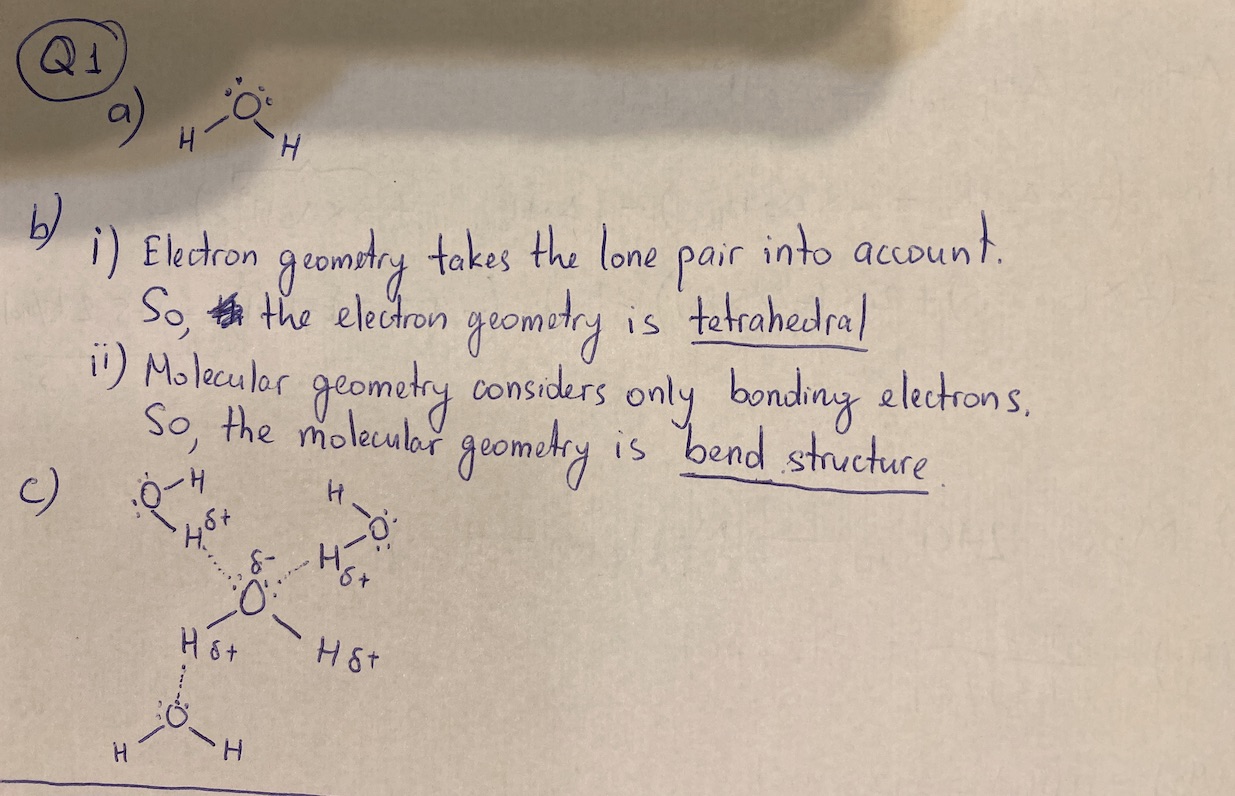 Q1
a)
:Ö:
H H
b)
i) Electron geometry takes the lone pair into account.
So, the electron geometry is tetrahedral
ii) Molecular geometry considers only bonding electrons.
So, the molecular geometry is bend structure.
c)
:O-H H
H δ+ O:
δ- H
:O: δ+
H δ+ H δ+
:O:
H H